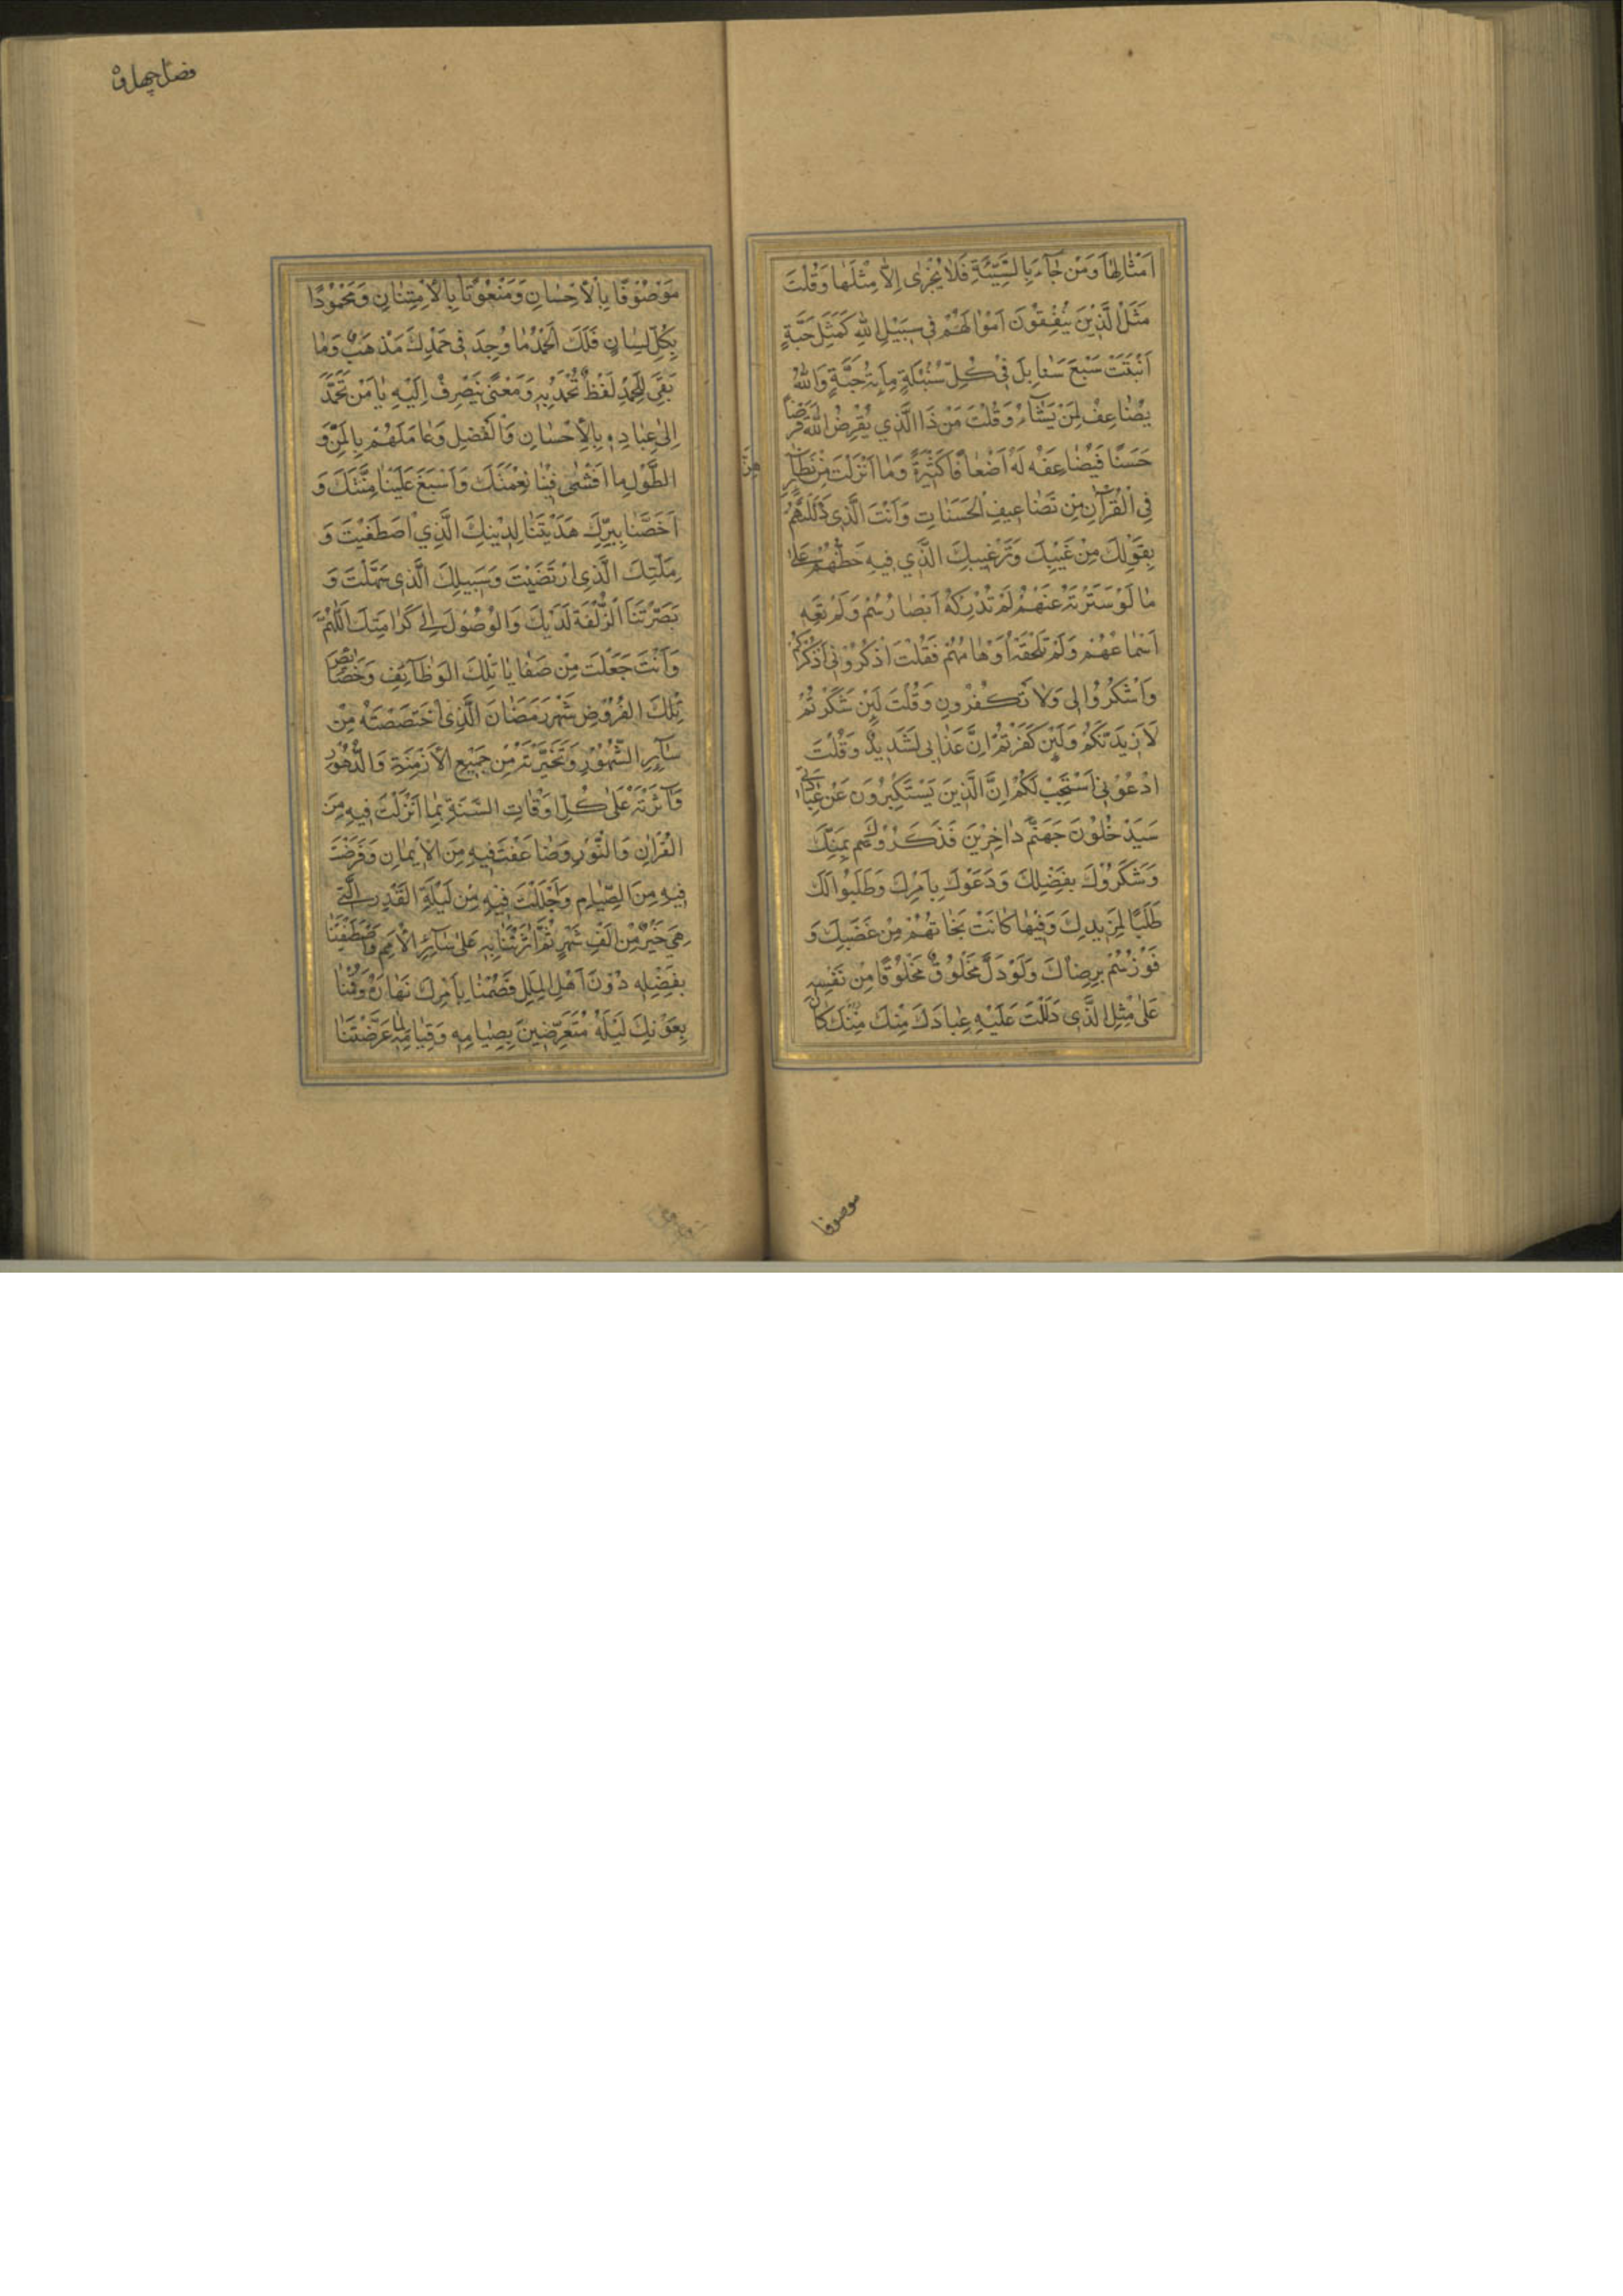 اَمْثٰالِهٰا وَمَنْ جٰآءَ بِالسَّيِّئَةِ فَلاٰ يُجْزٰى اِلاّٰ مِثْلَهٰا وَقُلْتَ
مَثَلُ الَّذِيْنَ يُنْفِقُوْنَ اَمْوٰالَهُمْ فِى سَبِيْلِ اللهِ كَمَثَلِ حَبَّةٍ
اَنْبَتَتْ سَبْعَ سَنٰابِلَ فِى كُلِّ سُنْبُلَةٍ مِاَئةُ حَبَّةٍ وَاللهُ
يُضٰاعِفُ لِمَنْ يَشٰآءُ وَقُلْتَ مَنْ ذَا الَّذِي يُقْرِضُ اللهَ قَرْضاً
حَسَنًا فَيُضٰاعِفَهُ لَهُ اَضْعٰافًا كَثِيْرَةً وَمٰا اَنْزَلْتَ مِنْ نَظٰآئِرِهِنَّ
فِى الْقُرْآنِ مِنْ تَضٰاعِيفِ الْحَسَنٰاتِ وَاَنْتَ الَّذِى دَلَلْتَهُمْ
بِقَوْلِكَ مِنْ غَيْبِكَ وَتَرْغِيبِكَ الَّذِي فِيهِ حَظُّهُمْ عَلىٰ
مٰا لَوْ سَتَرْتَهُ عَنْهُمْ لَمْ تُدْرِكْهُ اَبْصٰارُهُمْ وَلَمْ تَعِهِ
اَسْمٰاعُهُمْ وَلَمْ تَلْحَقْهُ اَوْهٰامُهُمْ فَقُلْتَ اذْكُرُوْنِى اَذْكُرْكُمْ
وَاشْكُرُوْا لِى وَلاٰ تَكْفُرُونِ وَقُلْتَ لَئِنْ شَكَرْتُمْ
لَاَزِيدَنَّكُمْ وَلَئِنْ كَفَرْتُمْ اِنَّ عَذٰابِى لَشَدِيدٌ وَقُلْتَ
ادْعُوْنِى اَسْتَجِبْ لَكُمْ اِنَّ الَّذِينَ يَسْتَكْبِرُونَ عَنْ عِبٰادَتِى
سَيَدْخُلُوْنَ جَهَنَّمَ دٰاخِرِيْنَ فَذَكَرُوْكَ بِمَنِّكَ
وَشَكَرُوْكَ بِفَضْلِكَ وَدَعَوْكَ بِاَمْرِكَ وَطَلَبُوا لَكَ
طَلَبًا لِمَزِيدِكَ وَفِيْهٰا كٰانَتْ نَجٰاتُهُمْ مِنْ غَضَبِكَ وَ
فَوْزُهُمْ بِرِضٰاكَ وَلَوْ دَلَّ مَخْلُوْقٌ مَخْلُوْقًا مِنْ نَفْسِهِ
عَلىٰ مِثْلِ الَّذِى دَلَلْتَ عَلَيْهِ عِبٰادَكَ مِنْكَ كٰانَ
موصوفا
مَوْصُوْفًا بِالْاِحْسٰانِ وَمَنْعُوْتًا بِالْاِمْتِنٰانِ وَمَحْمُوْدًا
بِكُلِّ لِسٰانٍ فَلَكَ الْحَمْدُ مٰا وُجِدَ فِى حَمْدِكَ مَذْهَبٌ وَمٰا
بَقِىَ لِلْحَمْدِ لَفْظٌ تُحْمَدُ بِهِ وَمَعْنًى يَنْصَرِفُ اِلَيْهِ يٰا مَنْ تَحَمَّدَ
اِلىٰ عِبٰادِهِ بِالْاِحْسٰانِ وَالْفَضْلِ وَعٰامَلَهُمْ بِالْمَنِّ وَ
الطَّوْلِ مٰا اَفْشىٰ فِيْنٰا نِعْمَتَكَ وَاَسْبَغَ عَلَيْنٰا مِنَّتَكَ وَ
اَخَصَّنٰا بِبِرِّكَ هَدَيْتَنٰا لِدِيْنِكَ الَّذِي اصْطَفَيْتَ وَ
مِلَّتِكَ الَّذِى ارْتَضَيْتَ وَسَبِيلِكَ الَّذِى سَهَّلْتَ وَ
بَصَّرْتَنَا الزُّلْفَةَ لَدَيْكَ وَالْوُصُوْلَ اِلىٰ كَرٰامَتِكَ اَللّٰهُمَّ
وَاَنْتَ جَعَلْتَ مِنْ صَفٰايٰا تِلْكَ الْوَظٰآئِفِ وَخَصٰائِصِ
تِلْكَ الْفُرُوْضِ شَهْرَ رَمَضٰانَ الَّذِى اخْتَصَصْتَهُ مِنْ
سٰآئِرِ الشُّهُوْرِ وَتَخَيَّرْتَهُ مِنْ جَمِيْعِ الْاَزْمِنَةِ وَالدُّهُوْرِ
وَآثَرْتَهُ عَلىٰ كُلِّ اَوْقٰاتِ السَّنَةِ بِمٰا اَنْزَلْتَ فِيهِ مِنَ
الْقُرْاٰنِ وَالنُّوْرِ وَضٰاعَفْتَ فِيهِ مِنَ الْاِيمٰانِ وَفَرَضْتَ
فِيهِ مِنَ الصِّيٰامِ وَاَجْلَلْتَ فِيْهِ مِنْ لَيْلَةِ الْقَدْرِ الَّتِى
هِىَ خَيْرٌ مِنْ اَلْفِ شَهْرٍ ثُمَّ اٰثَرْتَنٰا بِهِ عَلىٰ سٰآئِرِ الْاُمَمِ وَاصْطَفَيْتَنٰا
بِفَضْلِهِ دُوْنَ اَهْلِ الْمِلَلِ فَصُمْنٰا بِاَمْرِكَ نَهٰارَهُ وَقُمْنٰا
بِعَوْنِكَ لَيْلَهُ مُتَعَرِّضِيْنَ بِصِيٰامِهِ وَقِيٰامِهِ لِمٰا عَرَّضْتَنٰا